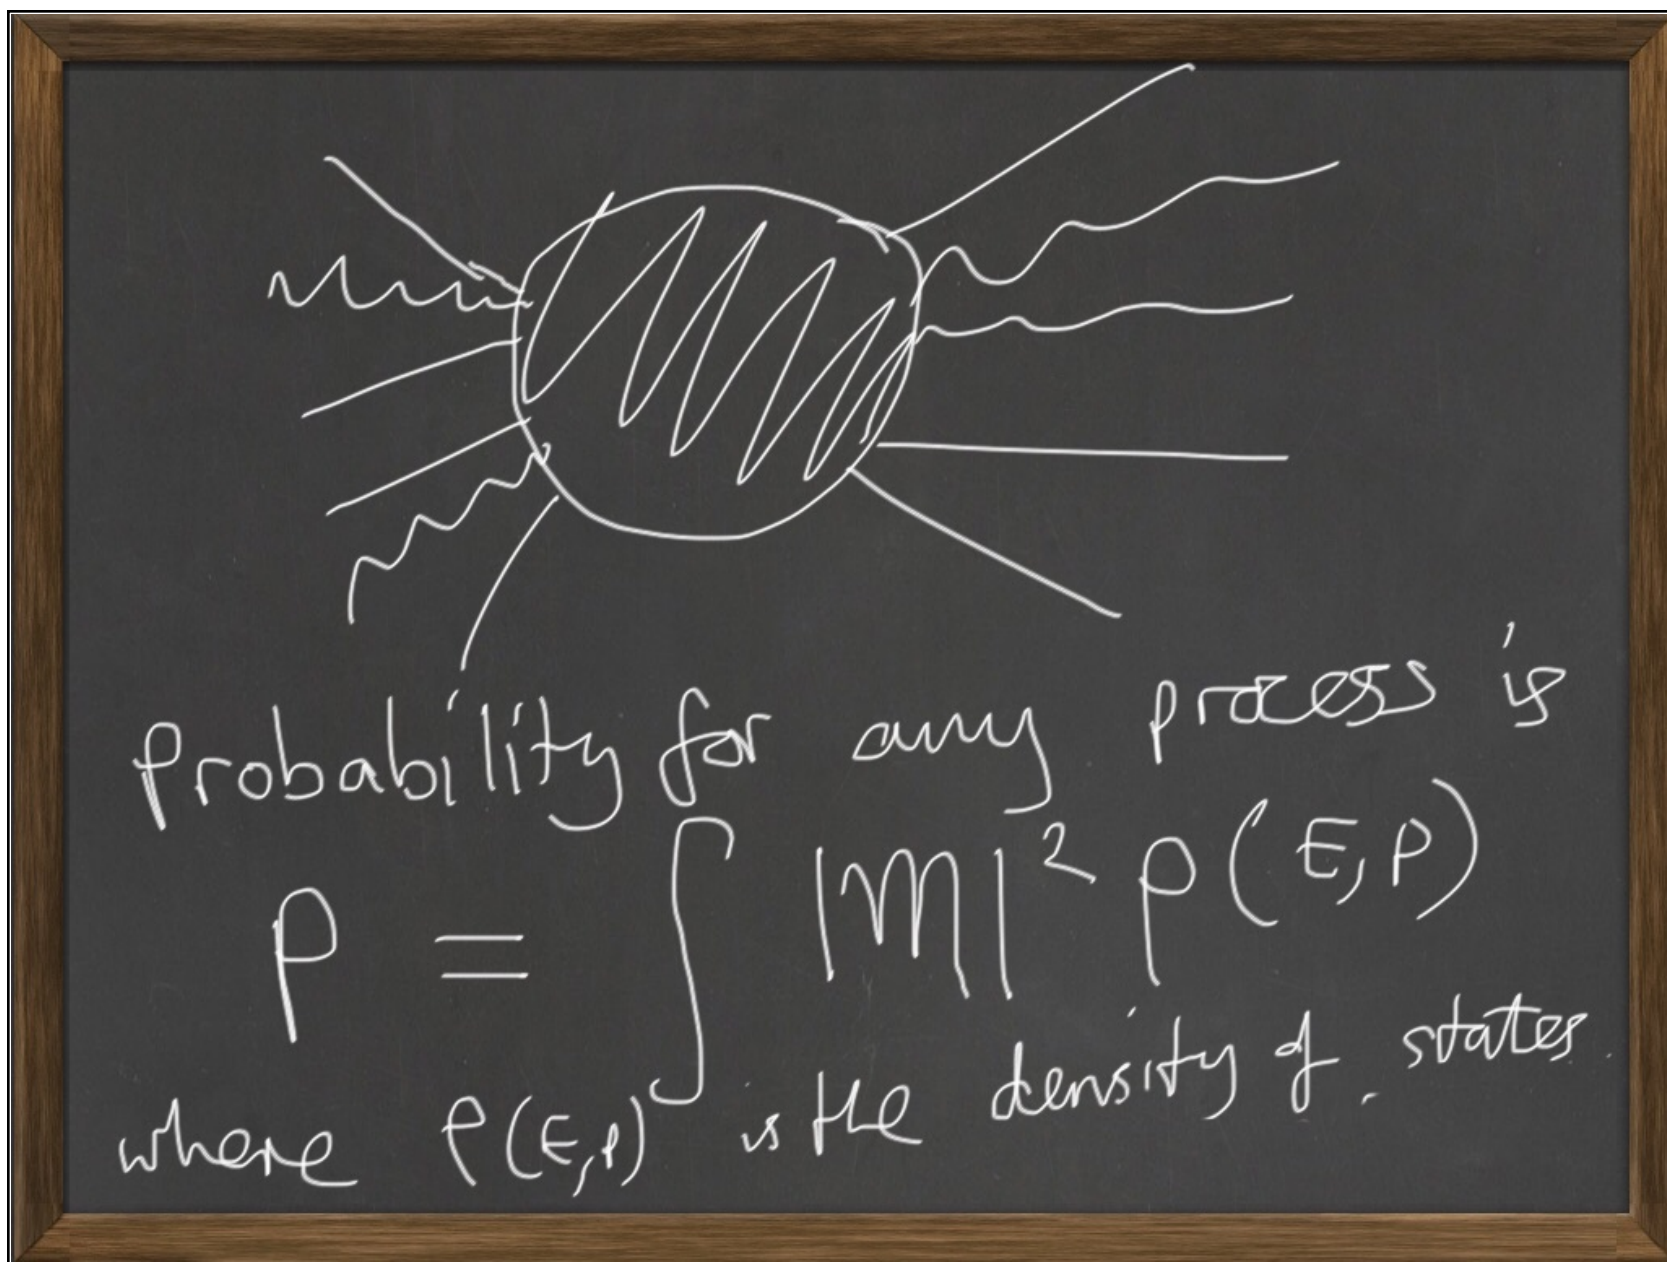 Probability for any process is
P = ∫ |M|² ρ(E,P)
where ρ(E,P) is the density of states.